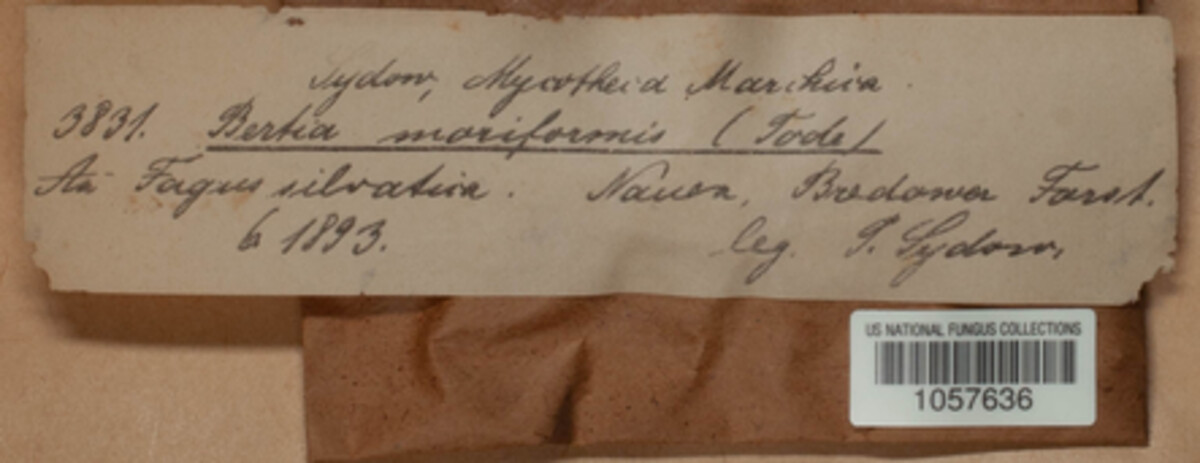 Sydow, Mycotheca Marchica.
3831. Bertia moriformis (Tode)
An Fagus silvatica. Nauen, Bredower Forst.
6 1893. leg. P. Sydow.
US NATIONAL FUNGUS COLLECTIONS
1057636